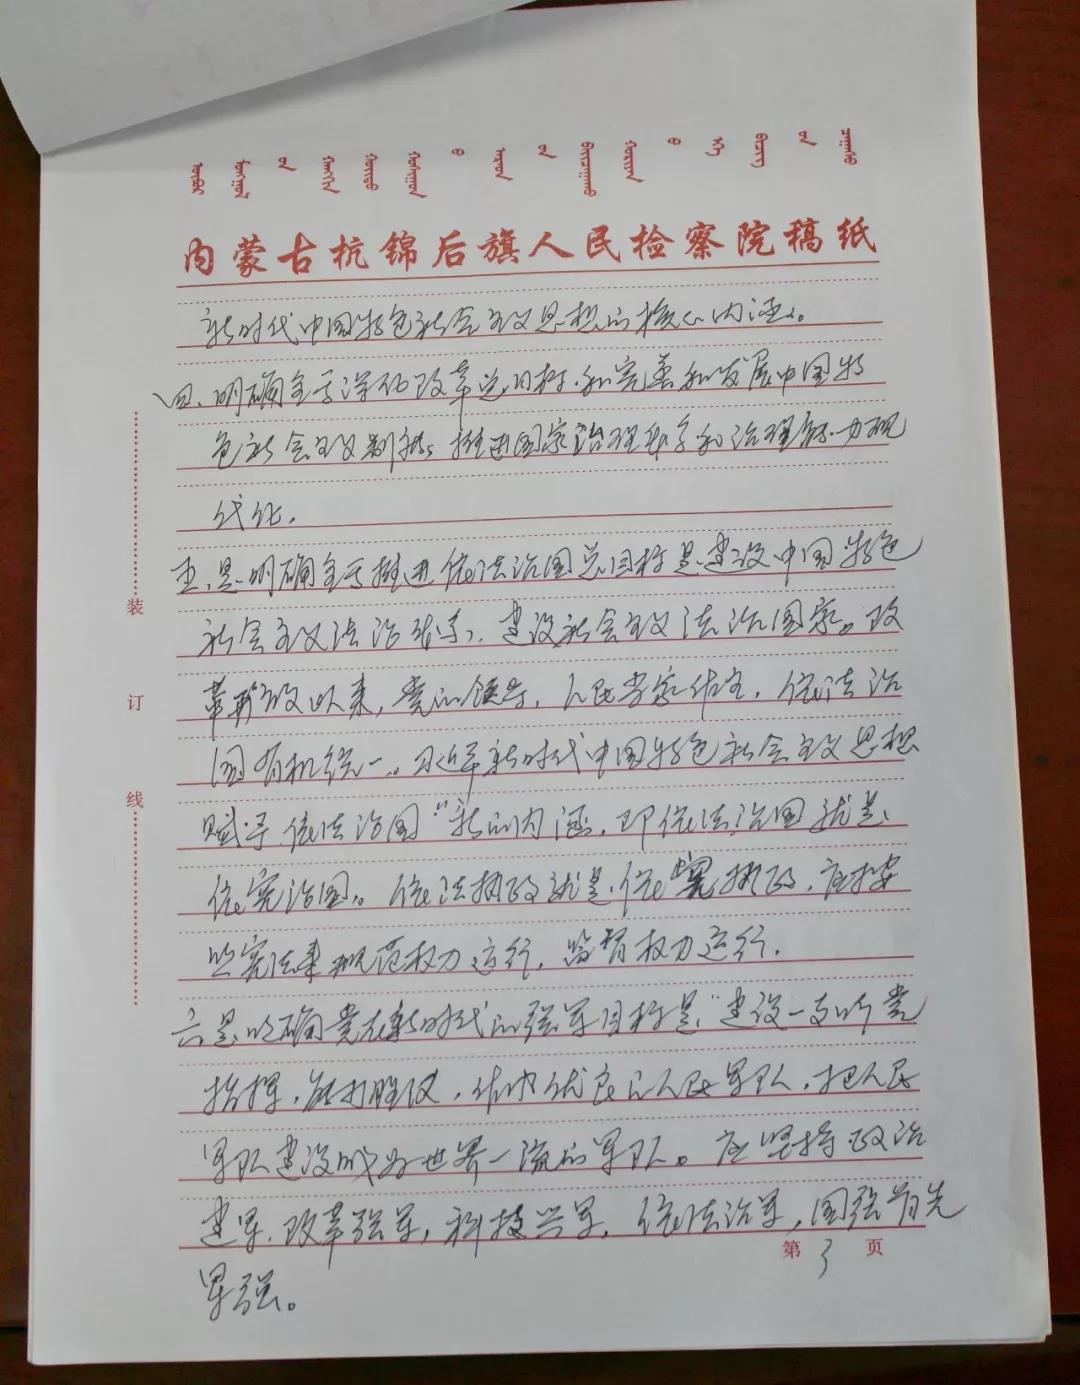 内蒙古杭锦后旗人民检察院稿纸
新时代中国特色社会主义思想的核心内涵。
四、明确全面深化改革总目标,和完善和发展中国特
色社会主义制度,推进国家治理体系和治理能力现
代化,
五、是明确全面推进依法治国总目标是建设中国特色
社会主义法治体系,建设社会主义法治国家。改
革开放以来,党的领导,人民当家作主,依法治
国有机统一。习近平新时代中国特色社会主义思想
赋予依法治国“新的内涵,即依法治国就是
依宪治国。依法执政就是依宪执政,应按
照宪法来规范权力运行,监督权力运行.
六是明确党在新时代的强军目标是“建设一支听党
指挥,能打胜仗,作风优良的人民军队,把人民
军队建设成为世界一流的军队。应坚持政治
建军,改革强军,科技兴军,依法治军,国强首先
军强。
装
订
线
第3页